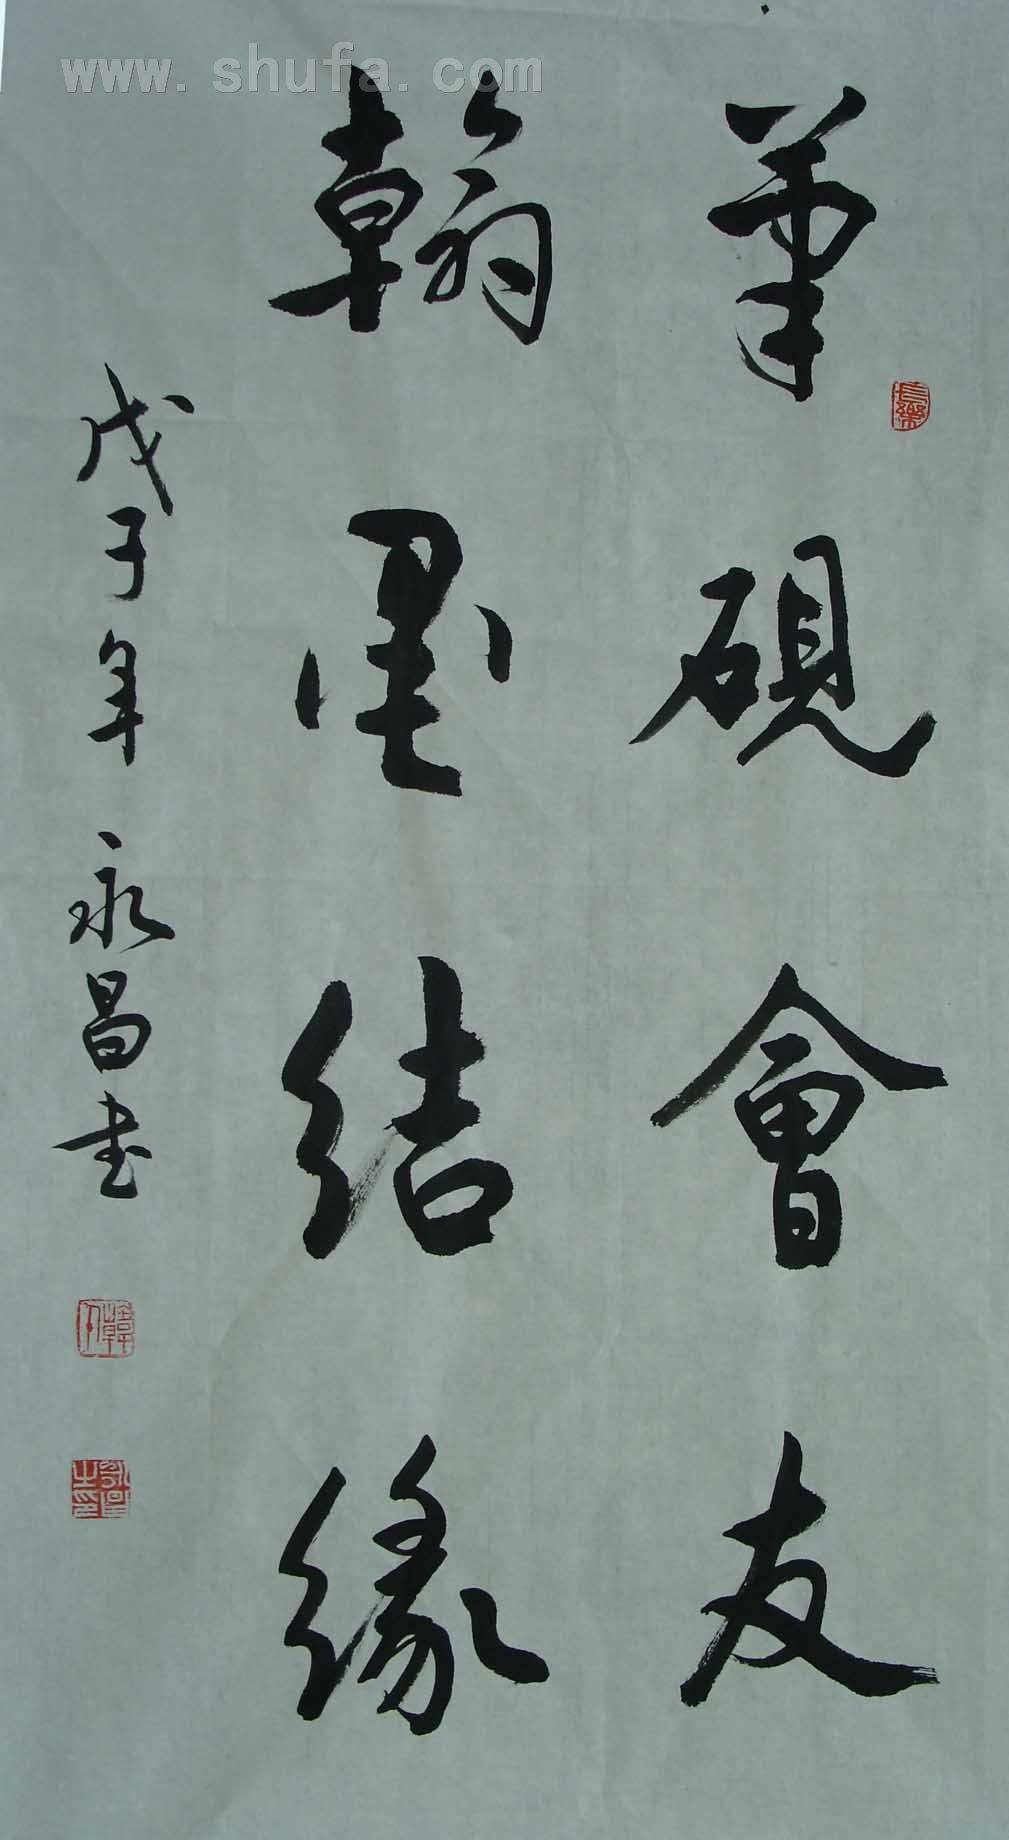 筆硯會友
翰墨结缘
戊子年 永昌书
長樂
www.shufa.com